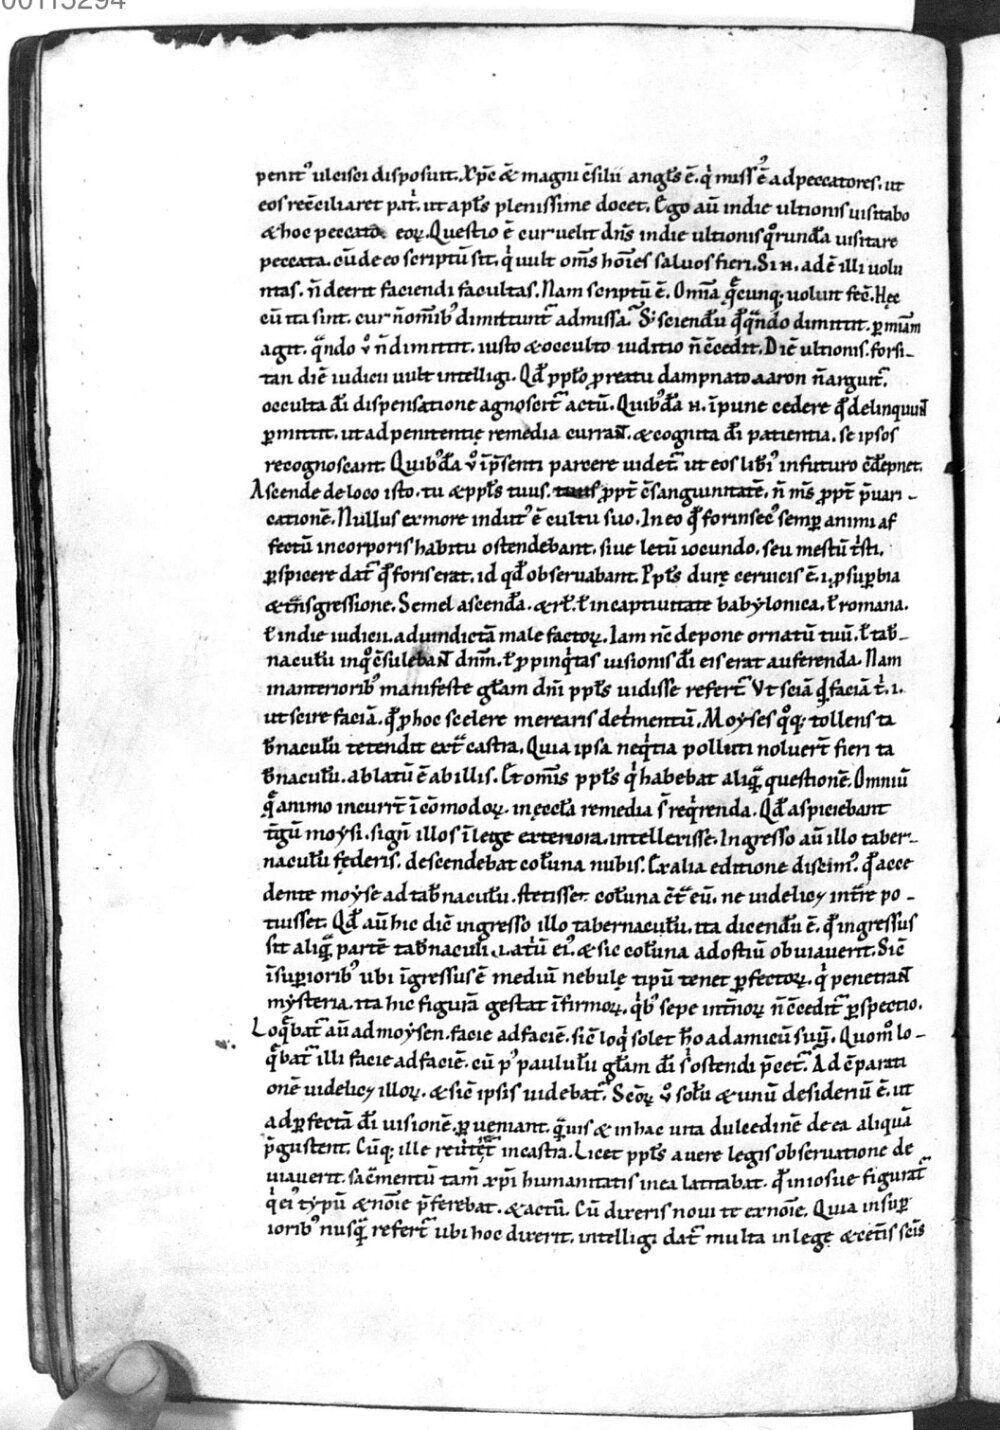 00115294
penit᾿ ulcisci disposuit. Xp̄c & magni c̄silii angl̄s ē. q̇ miss᾿ ē ad peccatores. ut
eos rec̄ciliaret pat̓. ut apl̄s plenissime docet. Ego aū in die ultionis uisitabo
& hoc peccatū eoꝝ. Questio ē cur uelit dn̄s in die ultionis q̊rund̄a uisitare
peccata. cū de eo scriptū sit. q̇ uult om̄s hōies saluos fieri. Si n. adē illi uolu
ntas. n̄ deerit faciendi facultas. Nam scriptū ē. Om̄a q̄cunq; uoluit fec̄. Hęc
cū ita sint. cur n̄ om̄ib᾿ dimittunt̄ admissa. S; sciendū qd̄ q̄ndo dimittit. ꝑ miām
agit. q̄ndo ů n̄ dimittit. iusto & occulto iuditio n̄ c̄cedit. Diē ultionis. forsi-
tan diē iudicii uult intelligi. Qd̄ pplo ꝓ reatu dampnato aaron n̄ arguit̄.
occulta dī dispensatione agnoscit̄ actū. Quib᾿d̄a n. īpune cedere qd̄ delinquunt
ꝑmittit. ut ad penitentię remedia currant. & cognita dī patientia. se ipsos
recognoscant. Quib᾿d̄a ů ip̄senti parcere uidet̄. ut eos lib̄i᾿ in futuro c̄dēpnet.
Ascende de loco isto. tu & ppl̄s tuus. ꝓpt̄ c̄sanguinitatē. n̄ m̄s ꝓpt̄ p̄uari-
cationē. Nullus ex more indut᾿ ē cultu suo. In eo qd̄ forinsec᾿ semꝑ animi af
fectū in corporis habitu ostendebant. siue letū iocundo. seu mestū t̓sti.
ꝑspicere dat̄ qd̄ foris erat. id qd̄ obseruabant. Ppl̄s durę ceruicis ē. i. ꝓ suꝑbia
& tn̄sgressione. Semel ascend̄a. & rl̄. ł in captiuitate babylonica. ł romana.
ł in die iudicii. ad uindictā male factoꝝ. Iam nc̄ depone ornatū tuū. ł tab̄-
naculū in q̊ c̄sulebant dn̄m. ł ꝓpinq̇tas uisionis dī eis erat auferenda. Nam
in anteriorib᾿ manifeste glām dn̄i ppl̄s uidisse refert̄. Vt sciā qd̄ faciā t̓. i.
ut scire faciā. qd̄ ꝓ hoc scelere merearis det̓mentū. Moyses q̊q; tollens ta
b̄naculū tetendit ext̄ castra. Quia ipsa neq̇tia polluti noluert̄ fieri ta
b̄naculū. ablatū ē ab illis. Et om̄is ppl̄s q̇ habebat aliq̄ questionē. Omniū
q̄ animo incurrt̄ ī cōmodoꝝ. in ęccla remedia s̄ req̇renda. Qd̄ aspiciebant
t̄gū moysi. sign̄ illos ī lege exteriora. intellexisse. Ingresso aū illo taber-
naculū fęderis. descendebat colūna nubis. Ex alia editione discim᾿. qd̄ acce
dente moyse ad tab̄naculū. stetisset colūna c̄t̄ eū. ne uidelicꝫ int̄re po-
tuisset. Qd̄ aū hic dic̄ ingresso illo tabernaculū. ita dicendū ē. qd̄ ingressus
sit aliq̄ partē tab̄naculi. i. at̓ū ei᾿. & sic colūna ad ostiū obuiauerit. Sic̄
īsuꝑiorib᾿ ubi īgressus ē mediū nebulę tipū tenet ꝑfectoꝝ. q̇ penetrant
mysteria. ita hic figurā gestat īfirmoꝝ. q̇b᾿ sepe int̄noꝝ n̄ c̄cedit̄ ꝑspectio.
Loq̄bat̄ aū ad moysen. facie ad faciē. sic̄ loq̇ solet hō ad amicū suū. Quom̊ lo-
q̄bat̄ illi facie ad faciē. cū p᾿ paululū glām dī s᾿ ostendi p̄cet̄. Ad c̄parati
onē uidelicꝫ illoꝝ. & sic̄ ipsis uidebat̄. Sc̄oꝝ ů solū & unū desideriū ē. ut
ad ꝑfectā dī uisionē. ꝑueniant. q̄uis & in hac uita dulcedinē de ea aliquā
p̄gustent. Cūq; ille reu̓tet̄ in castra. Licet ppl̄s a uere legis obseruatione de
uiauerit. sac̄mentū tam̄ xp̄i humanitatis in ea latitabat. qd̄ in iosue figurat̄
q̇ ei᾿ typū & nōie p̄ferebat. & actū. Cū dixeris noui te ex nōie. Quia in suꝑ
iorib᾿ nusq̄ refert̄ ubi hoc dixerit. intelligi dat̄ multa in lege & cet̄is sc̄is